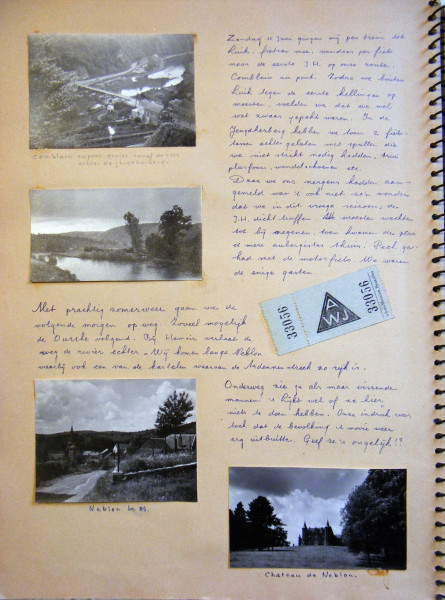 Zondag 11 juni gingen wij per tram tot
Luik, fietsen mee, vandaar per fiets
naar de eerste J.H. op onze route,
Comblain au pont. Zodra we buiten
Luik tegen de eerste hellingen op
moesten, voelden we dat we wel
wat zwaar gepakt waren. In de
Jeugdherberg hebben we toen 2 fiets-
tassen achter gelaten met spullen die
we niet strikt nodig hadden,
wandelschoenen etc.
Daar we ons nergens hadden aan-
gemeld was 't ook niet zo'n wonder
dat we in dit vroege seizoen, de
J.H. dicht troffen. We moesten wachten
tot bij negenen, toen kwamen de
en mere aubergiste thuis! Pech ge-
had met de motorfiets. We waren
de enige gasten.
Comblain au pont
AWJ
33056
33056
Met prachtig zomerweer gaan we de
volgende morgen op weg. Zoveel mogelijk
de Ourthe volgend. Bij Hamoir verlaat de
weg de rivier echter. Wij komen langs Neblon
waarbij ook een van de kastelen waarvan de Ardennenstreek zo rijk is.
Onderweg zie je als maar vissende
mannen. 't Lijkt wel of ze hier
niets te doen hebben. Onze indruk was
toch dat de bevolking 't mooie weer
erg uitbuitte. Geef ze 's ongelijk!?
Neblon
Chateau de Neblon.